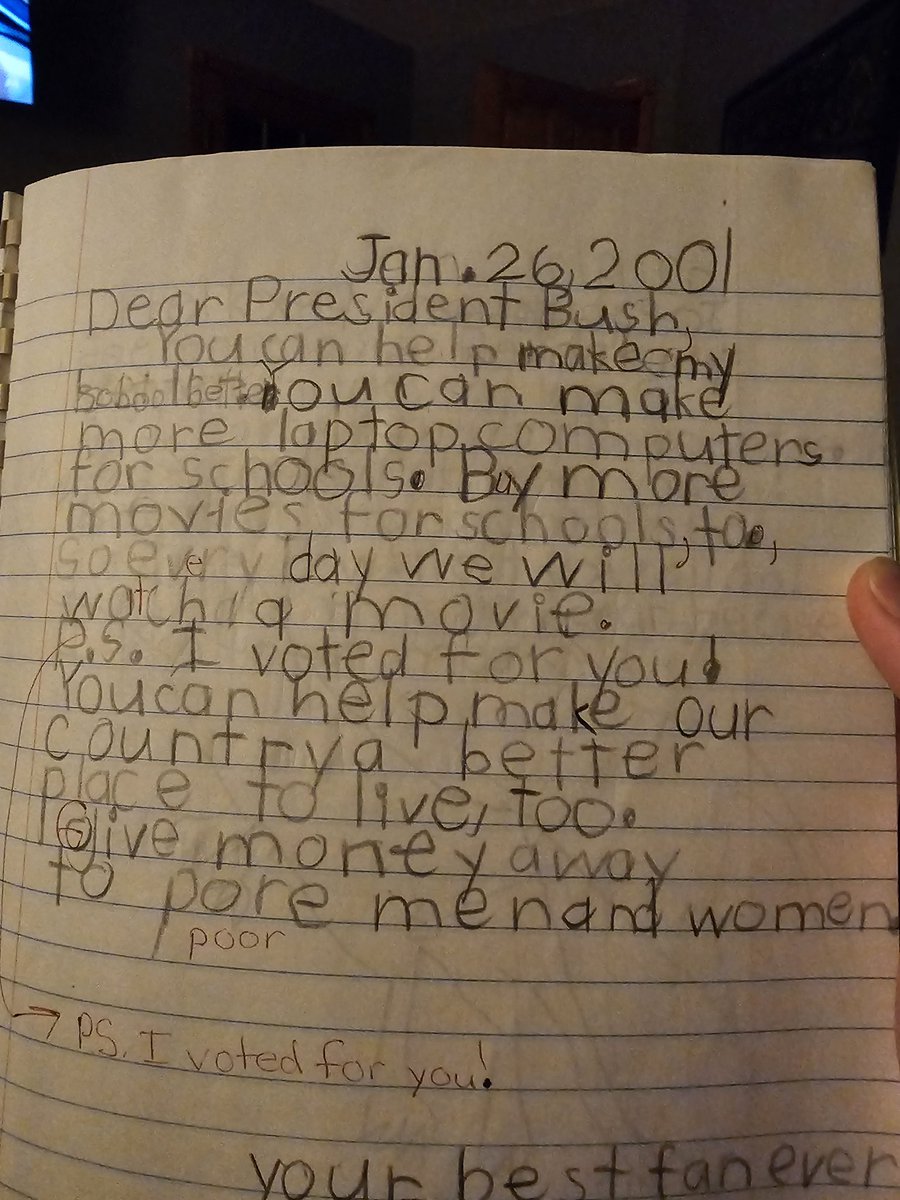 Jan. 26, 2001
Dear President Bush,
You can help make my
school better You can make
more laptop computers
for schools. Buy more
movies for schools, too,
so every day we will
watch a movie.
P.S. I voted for you!
You can help make our
country a better
place to live, too.
Give money away
to pore men and women
poor
→ P.S. I voted for you!
your best fan ever